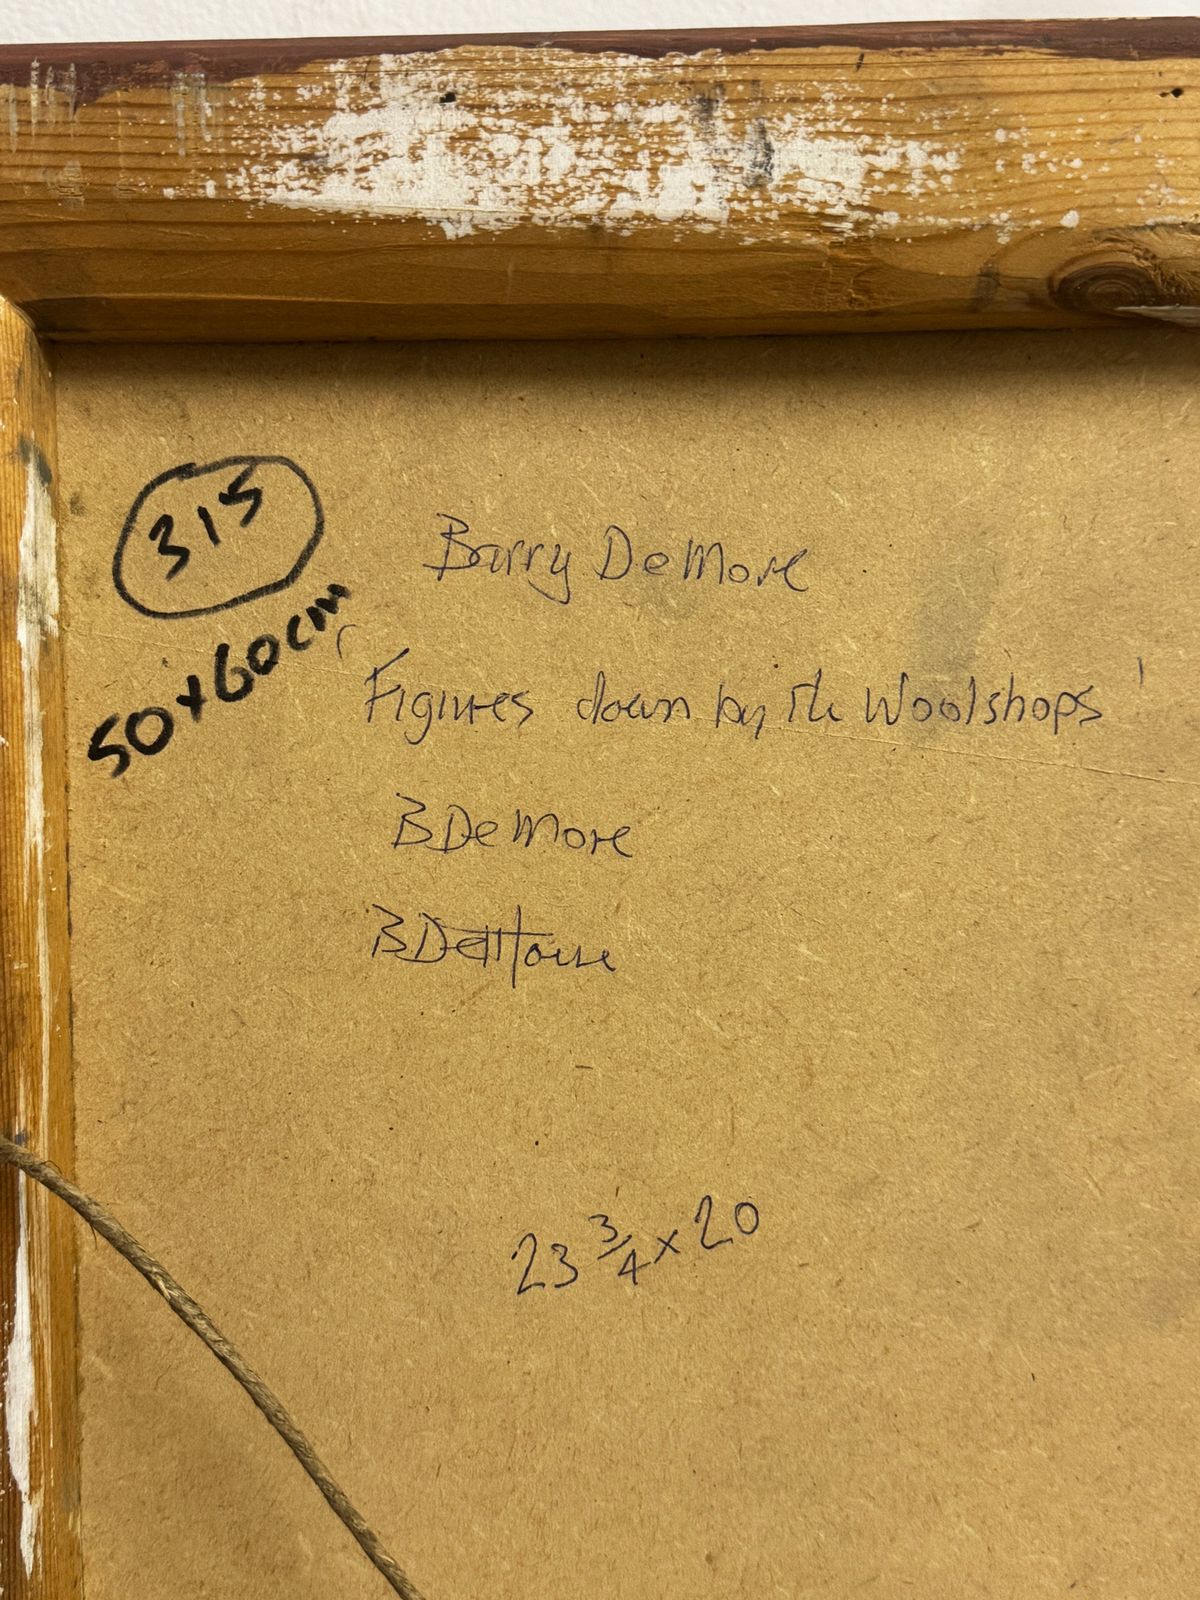 315
50x60cm
Barry DeMore
'Figures down by the Woolshops'
BDeMore
BDeMore
23 3/4 x 20